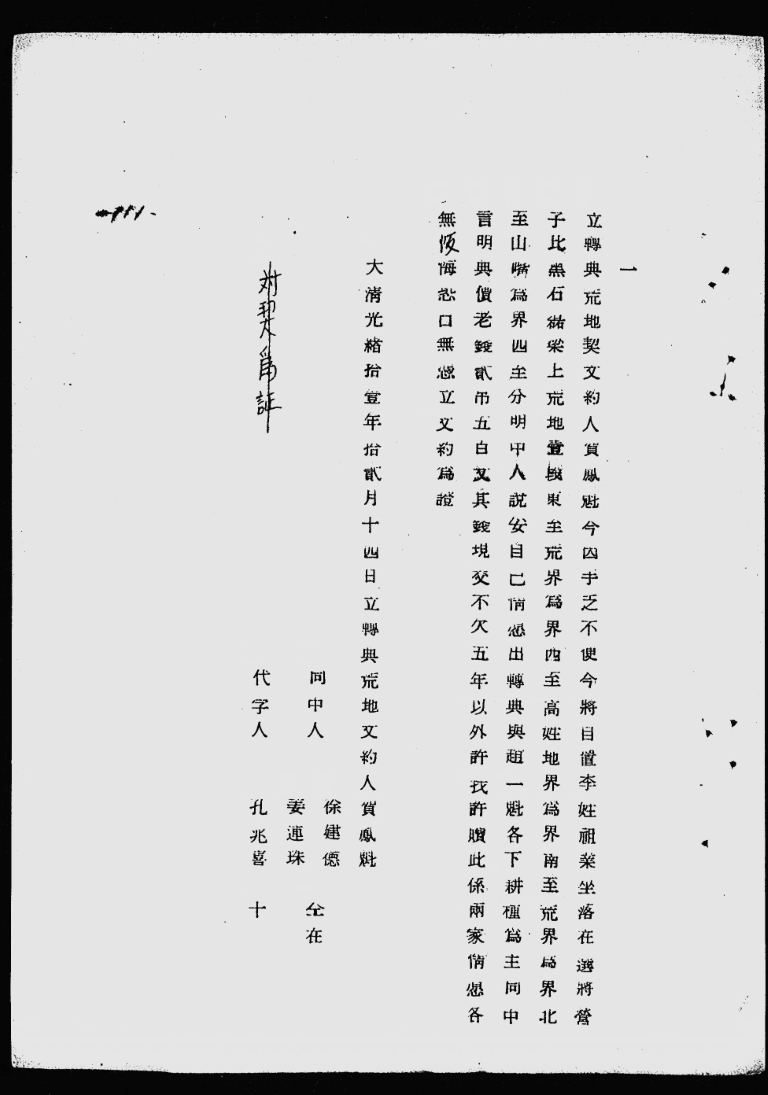 一
立轉典荒地契文約人賀鳳魁今因手乏不便今將自置李姓祖業坐落在選將營
子北黑石砬梁上荒地壹段東至荒界為界西至高姓地界為界南至荒界為界北
至山嘴為界四至分明中人說妥自己情愿出轉典與趙一魁各下耕種為主同中
言明典價老錢貳吊五白文其錢現交不欠五年以外許找許贖此係兩家情愿各
無返悔恐口無憑立文約為證
大清光緒拾壹年拾貳月十四日立轉典荒地文約人賀鳳魁
同中人 徐建德 姜連珠 仝在
代字人 孔兆喜 十
對契為証